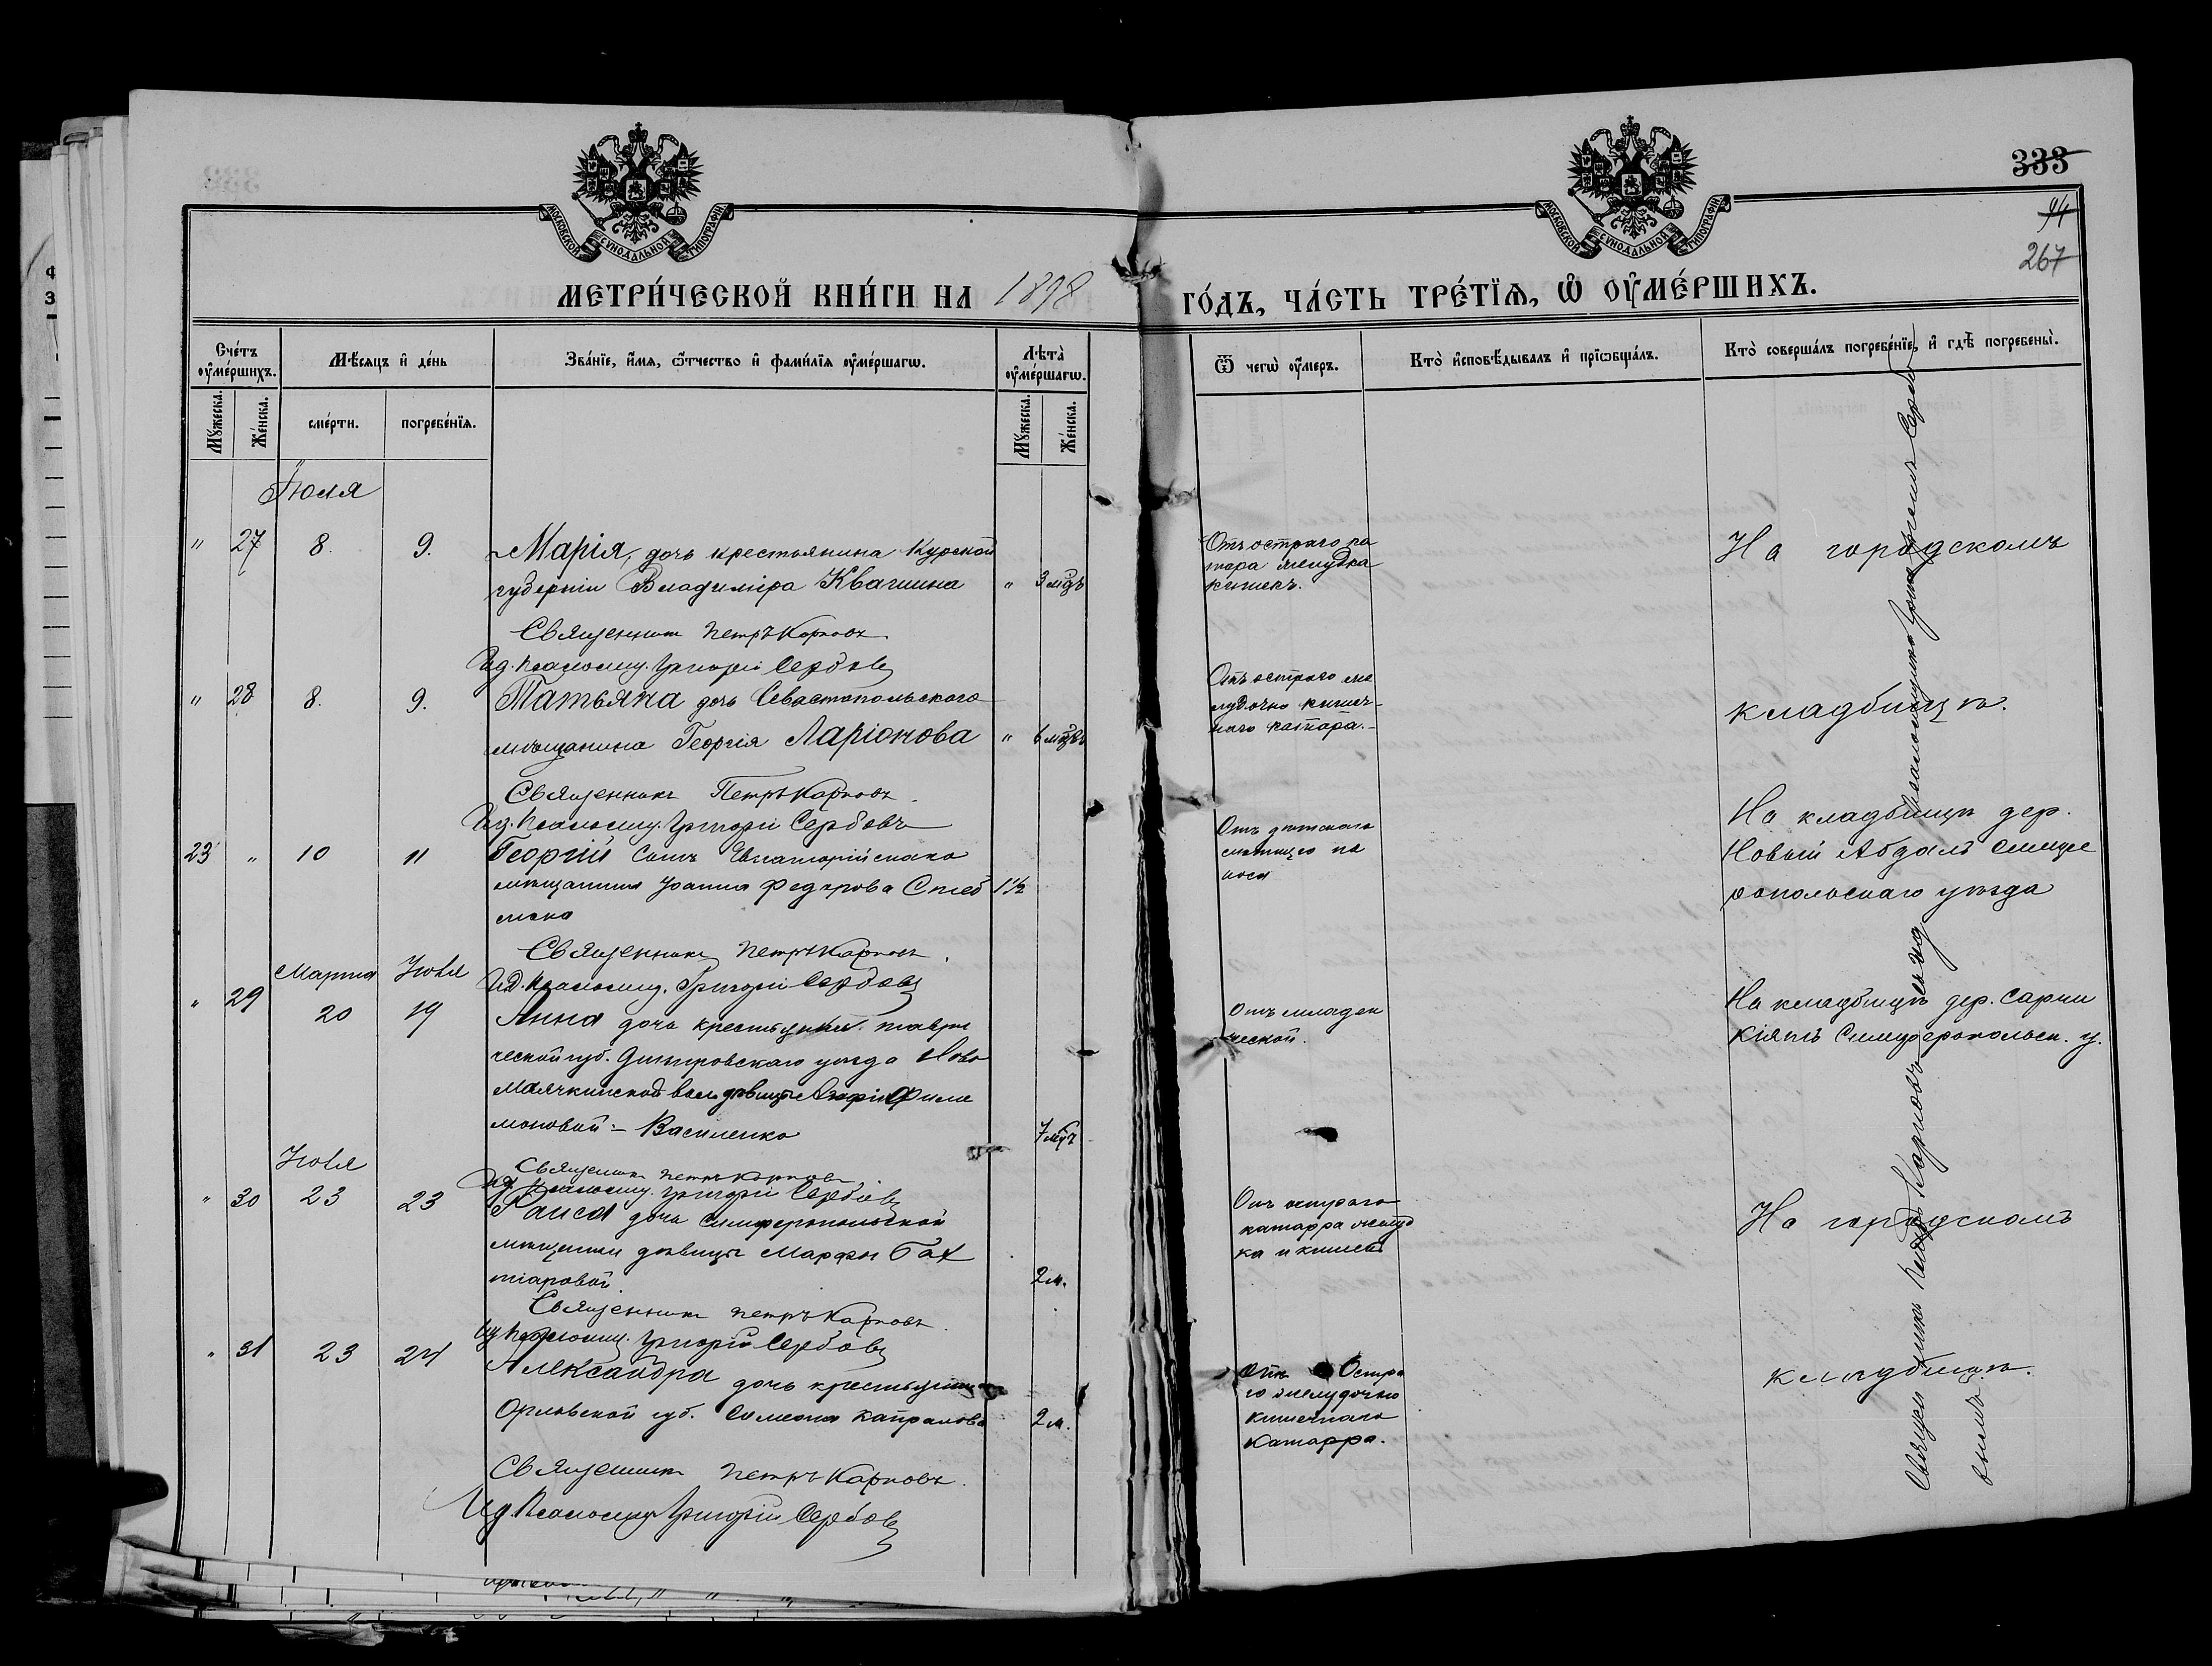 333
94
267
МОСКОВСКОЙ СѴНОДАЛЬНОЙ ТИПОГРАФІИ
МОСКОВСКОЙ СѴНОДАЛЬНОЙ ТИПОГРАФІИ
МЕТРИ́ЧЕСКОЙ КНИ́ГИ НА 1898 ГО́ДЪ, ЧА́СТЬ ТРЕ́ТЇѦ, Ѡ҆ ОУ҆МЕ́РШИХЪ.
Сче́тъ оу҆ме́ршихъ.
Мꙋ́жеска.
Же́нска.
Мѣ́сяцъ и҆ де́нь
сме́рти.
погребе́нїѧ.
Зва́нїе, и҆́мѧ, ѻ҆́тчество и҆ фами́лїѧ оу҆ме́ршагѡ.
Лѣ́та оу҆ме́ршагѡ.
Мꙋ́жеска.
Же́нска.
Ѿ чегѡ̀ оу҆́меръ.
Кто̀ и҆сповѣ́дывалъ и҆ прїѡбща́лъ.
Кто̀ соверша́лъ погребе́нїе, и҆ гдѣ̀ погребены̀.
Іюля
" 27 8. 9. Марія, дочь крестьянина Курской
губерніи Владиміра Квашина " 3 мѣц.
Отъ остраго ка
тара желудка
кишекъ.
На городскомъ
Священникъ Петръ Карповъ
И.д. Псаломщ. Григорій Сербовъ
" 28 8. 9. Татьяна дочь Севастопольскаго
мѣщанина Георгія Ларіонова " 6 мѣц.
Отъ остраго же
лудочно кишеч-
наго катара.-
кладбищѣ.
Священникъ Петръ Карповъ.
И.д. Псаломщ. Григорій Сербовъ
23 " 10 11 Георгій сынъ Евпаторійскаго
мѣщанина Іоанна Федорова 1½
Отъ дѣтскаго
по
носа
На кладбищѣ дер.
Новый Абдалъ Симфе
ропольскаго уѣзда
Священникъ Петръ Карповъ.
И.д. Псаломщ. Григорій Сербовъ
Марта Іюля
" 29 20 19 Анна дочь крестьянки Таври
ческой губ. Днѣпровскаго уѣзда Ново
маячкинской вол. дѣвицы Филе
моновой - Василенко 7 мѣц.
Отъ младен
ческой.
На кладбищѣ дер. Сарчи
Кіятъ Симферопольск. у.
Священникъ Петръ Карповъ.
И.д. Псаломщ. Григорій Сербовъ
Іюля
" 30 23 23 Раиса дочь Симферопольской
мѣщанки дѣвицы Марфы Бах
тіаровой. 2 м.
Отъ остраго
катарра желуд
ка и кишекъ
На городскомъ
Священникъ Петръ Карповъ.
И.д. Псаломщ. Григорій Сербовъ
" 31 23 24 Александра дочь крестьянина
Орловской губ. Симеона Капранова 2 м.
Отъ Остра
го желудочно
кишечнаго
катарра.
кладбищѣ.
Священникъ Петръ Карповъ.
И.д. Псаломщ. Григорій Сербовъ
Священникъ Петръ Карповъ съ и.д. псаломщика Григоріемъ Сербо
вымъ